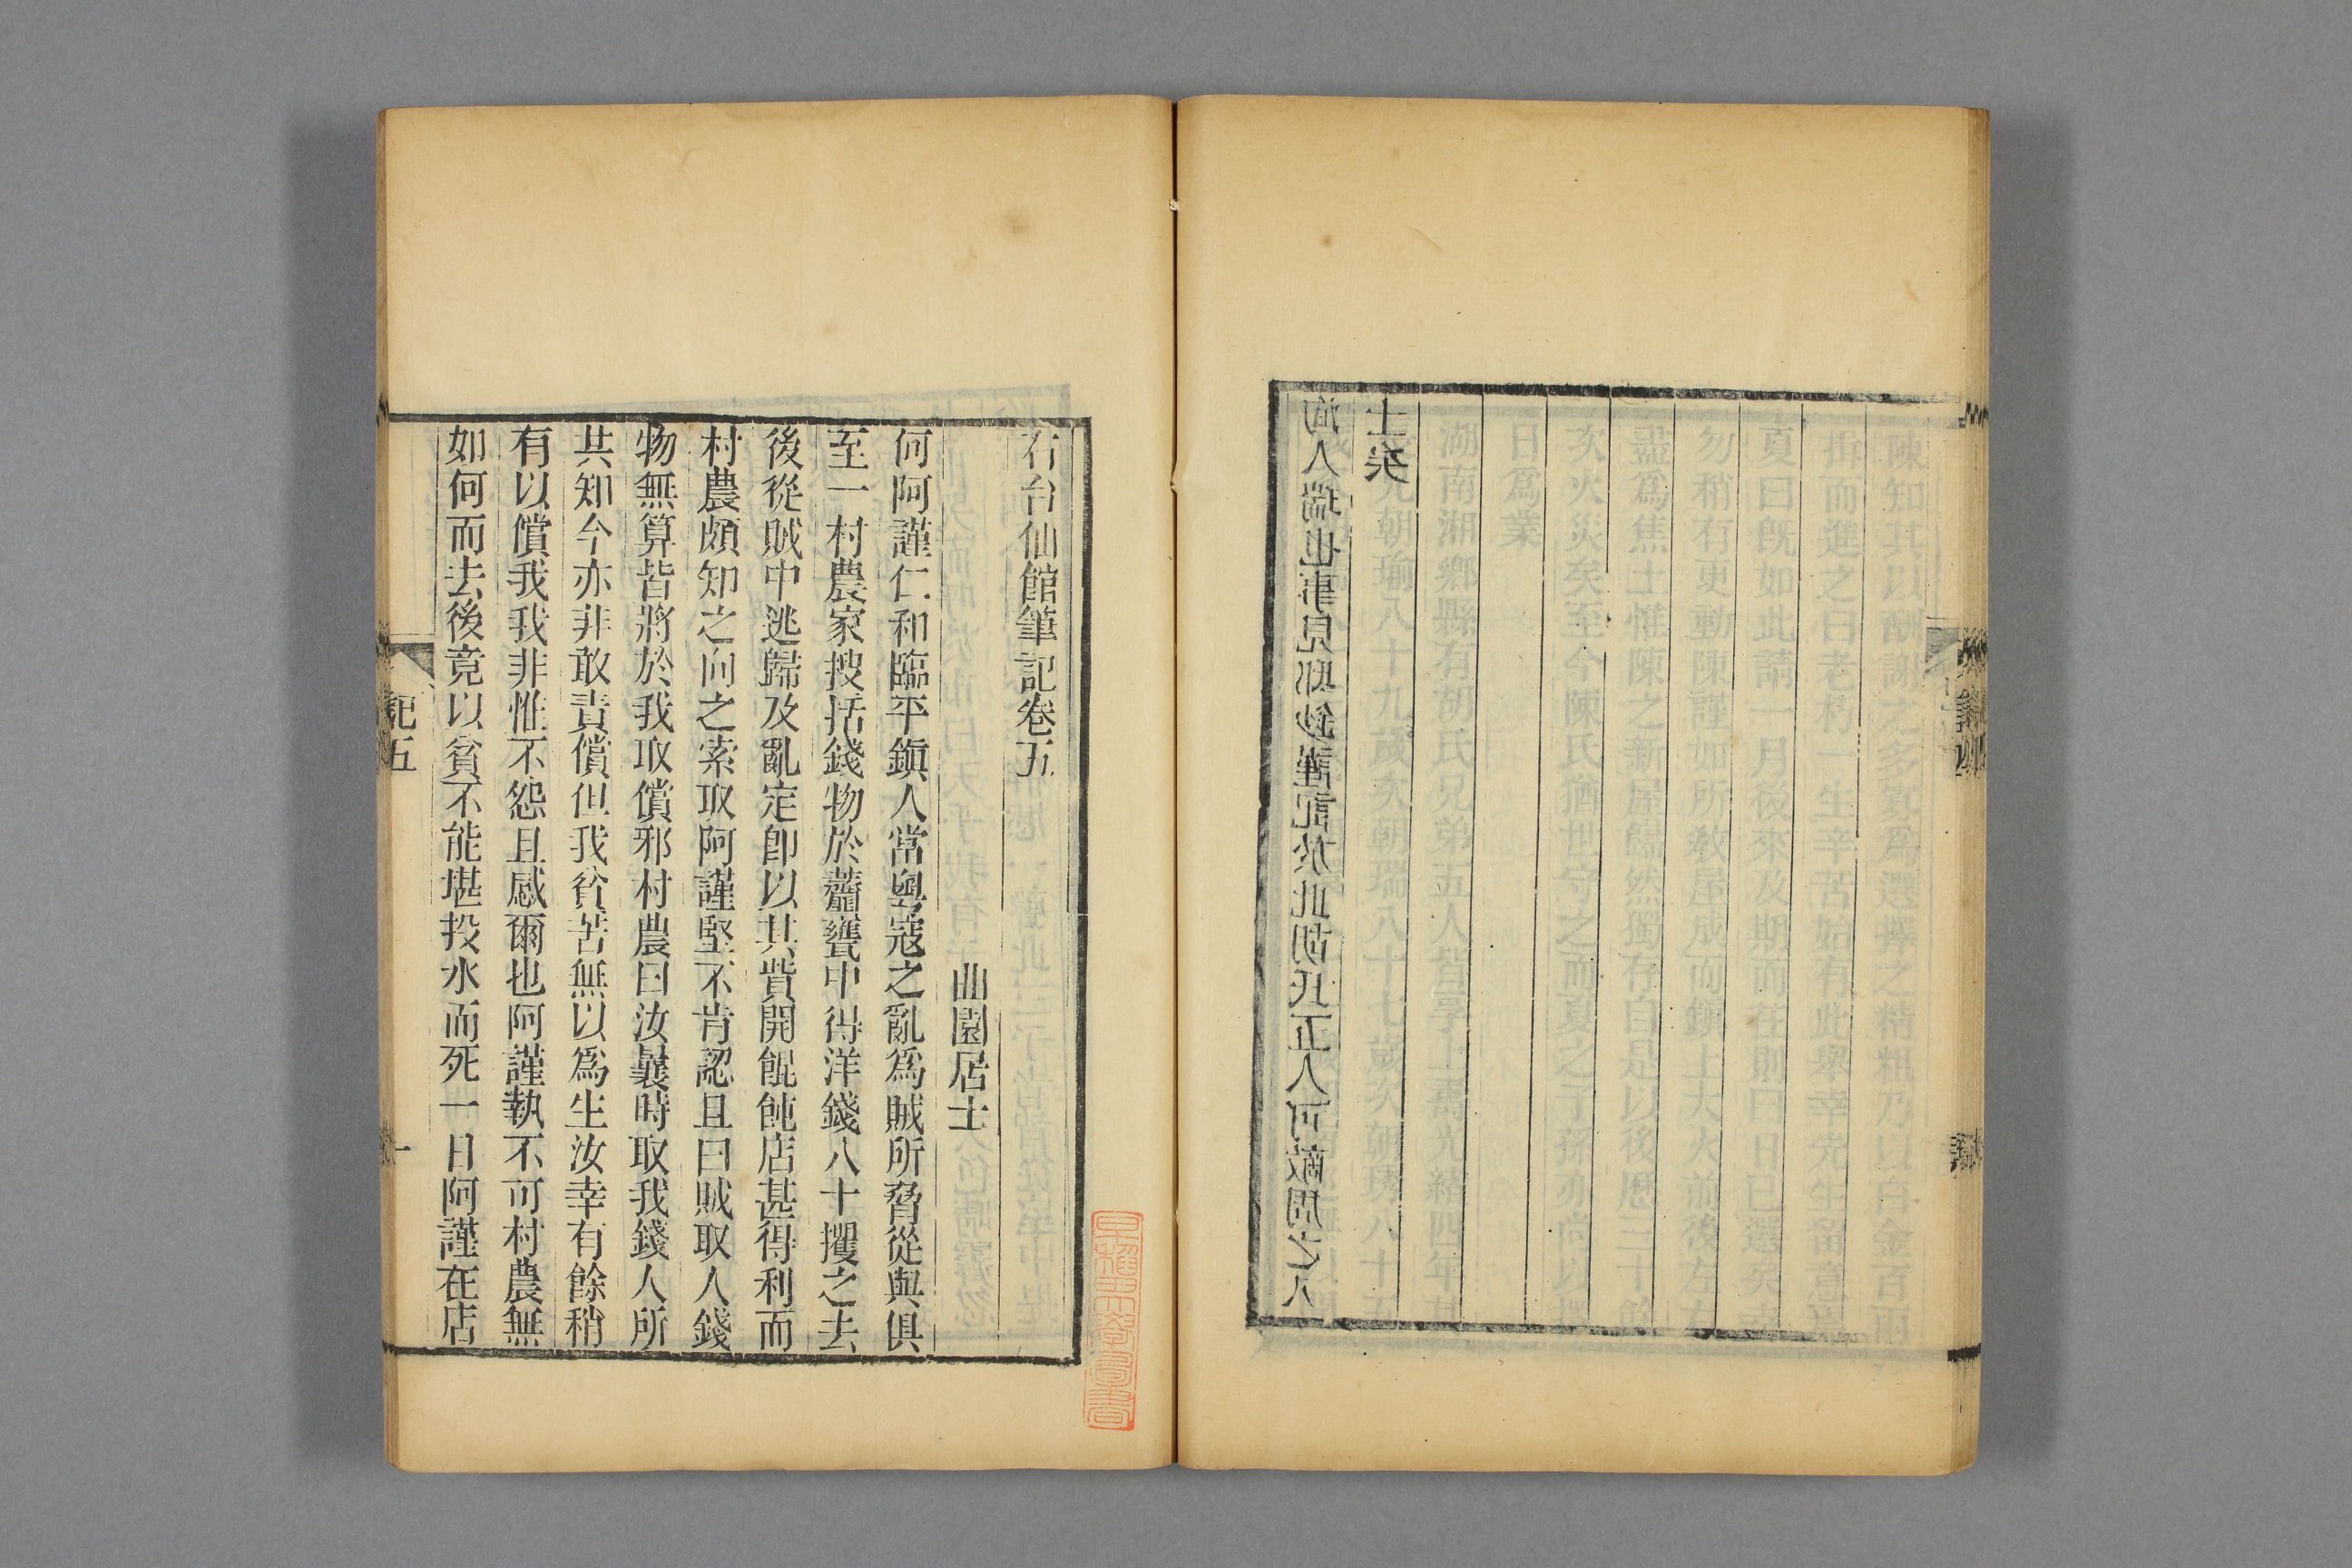 陳知其以酬謝之多寡爲選擇之精粗乃以白金百兩
揖而進之曰老朽一生辛苦始有此舉幸先生留意
夏曰旣如此請一月後來及期而往則曰日已選矣
勿稍有更動陳謹如所敎屋成而鎭上大火前後左右
盡爲焦土惟陳之新屋巋然獨存自是以後歷三十餘
火災矣至今陳氏猶世守之而夏之子孫亦尚以擇
日爲業
湖南湘鄉縣有胡氏兄弟五人皆享上壽光緒四年其
兄朝瑜八十九歲矣朝瑞八十七歲矣朝 八十五
洵人瑞也事見邸鈔謹記於此胡氏五人可敵周之八
士矣
右台仙館筆記卷五
曲園居士
何阿謹仁和臨平鎭人當粤寇之亂爲賊所脅從與俱
至一村農家搜括錢物於虀甕中得洋錢八十攫之去
後從賊中逃歸及亂定卽以其貲開餛飩店甚得利而
村農頗知之向之索取阿謹堅不肯認且曰賊取人錢
物無算皆將於我取償邪村農曰汝曩時取我錢人所
共知今亦非敢責償但我貧苦無以爲生汝幸有餘稍
有以償我我非惟不怨且感爾也阿謹執不可村農無
如何而去後竟以貧不能堪投水而死一日阿謹在店
記五
一
早稻田大學圖書